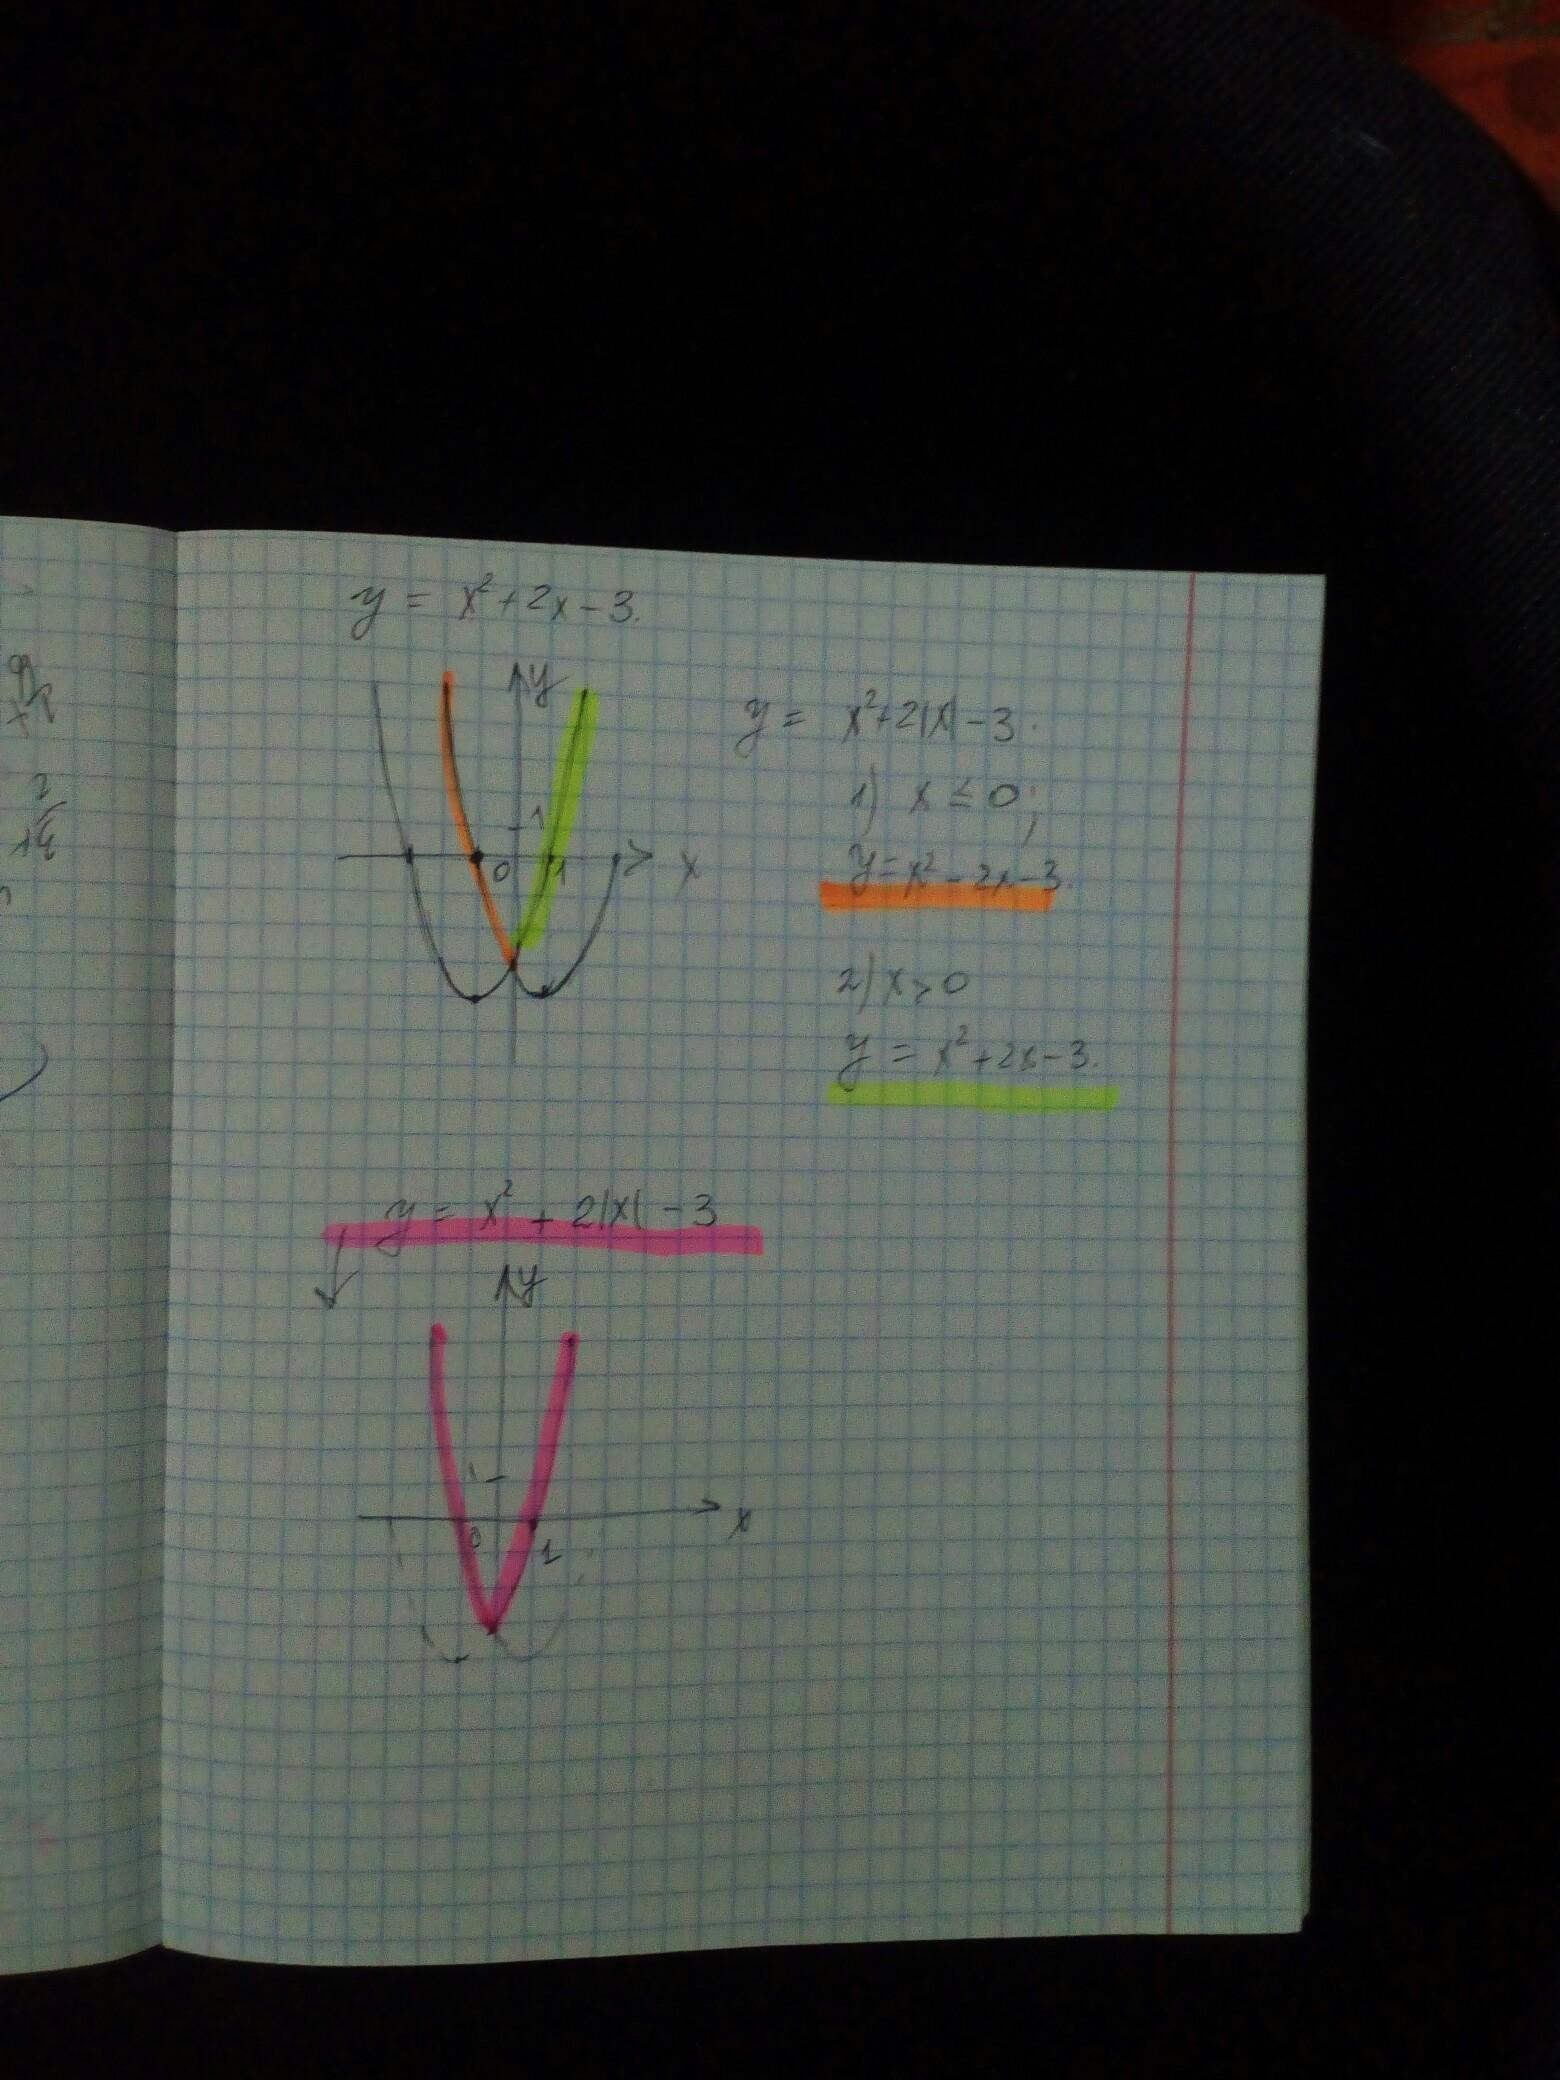 y = x² + 2x - 3.
y
1
0
1
x
y = x² + 2|x| - 3.
1) x ≤ 0;
y = x² - 2x - 3.
2) x > 0
y = x² + 2x - 3.
y = x² + 2|x| - 3
y
1
0
1
x